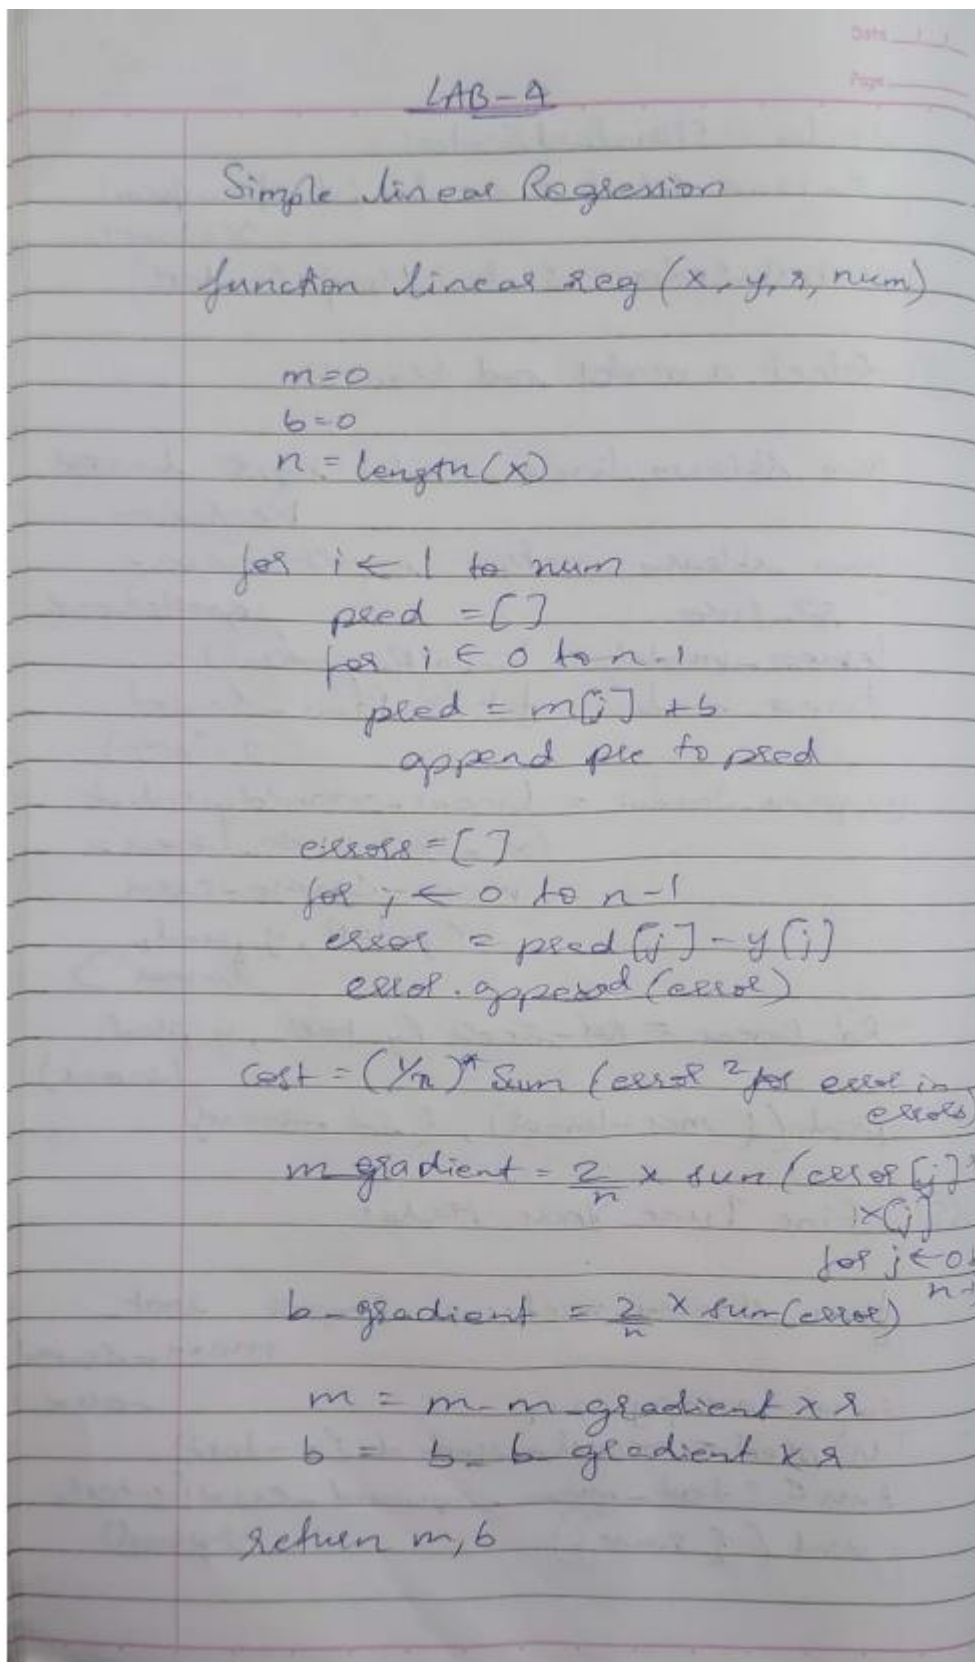 Date
Page
LAB-4
Simple linear Regression
function linear reg (x, y, r, num)
m=0
b=0
n = length(x)
for i ← 1 to num
pred = []
for i ← 0 to n-1
pred = m[j] + b
append pre to pred
errors = []
for j ← 0 to n-1
error = pred [j] - y[j]
error.append(error)
cost = (1/n)* Sum (error ² for error in
errors)
m gradient = 2/n x sum (error [j]
x[j]
for j ← 0
n-
b-gradient = 2/n x sum(error)
m = m - m-gradient x r
b = b - b-gradient x r
return m, b